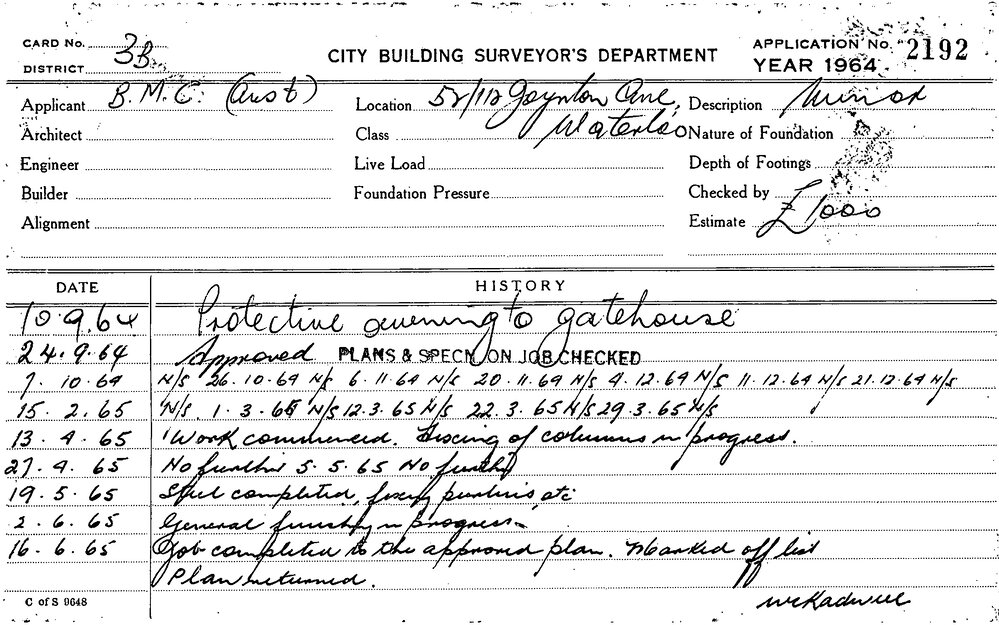 CARD No. 3B
DISTRICT
CITY BUILDING SURVEYOR'S DEPARTMENT
APPLICATION No. 2192
YEAR 1964
Applicant B.M.C. (Aust) Location 52/112 Joynton Ave, Description Minor
Architect Class Waterloo Nature of Foundation
Engineer Live Load Depth of Footings
Builder Foundation Pressure Checked by
Alignment Estimate £1000
DATE HISTORY
10.9.64 Protective awning to gatehouse
24.9.64 Approved PLANS & SPECN. ON JOB CHECKED
7.10.64 N/S 26.10.64 N/S 6.11.64 N/S 20.11.64 N/S 4.12.64 N/S 11.12.64 N/S 21.12.64 N/S
15.2.65 N/S. 1.3.65 N/S 12.3.65 N/S 22.3.65 N/S 29.3.65 N/S
13.4.65 Work commenced. Fixing of columns in progress.
27.4.65 No further 5.5.65 No further
19.5.65 Steel completed, fixing purlins, etc
2.6.65 General finishing in progress
16.6.65 Job completed to the approved plan. Marked off list
Plan returned.
C of S 9648